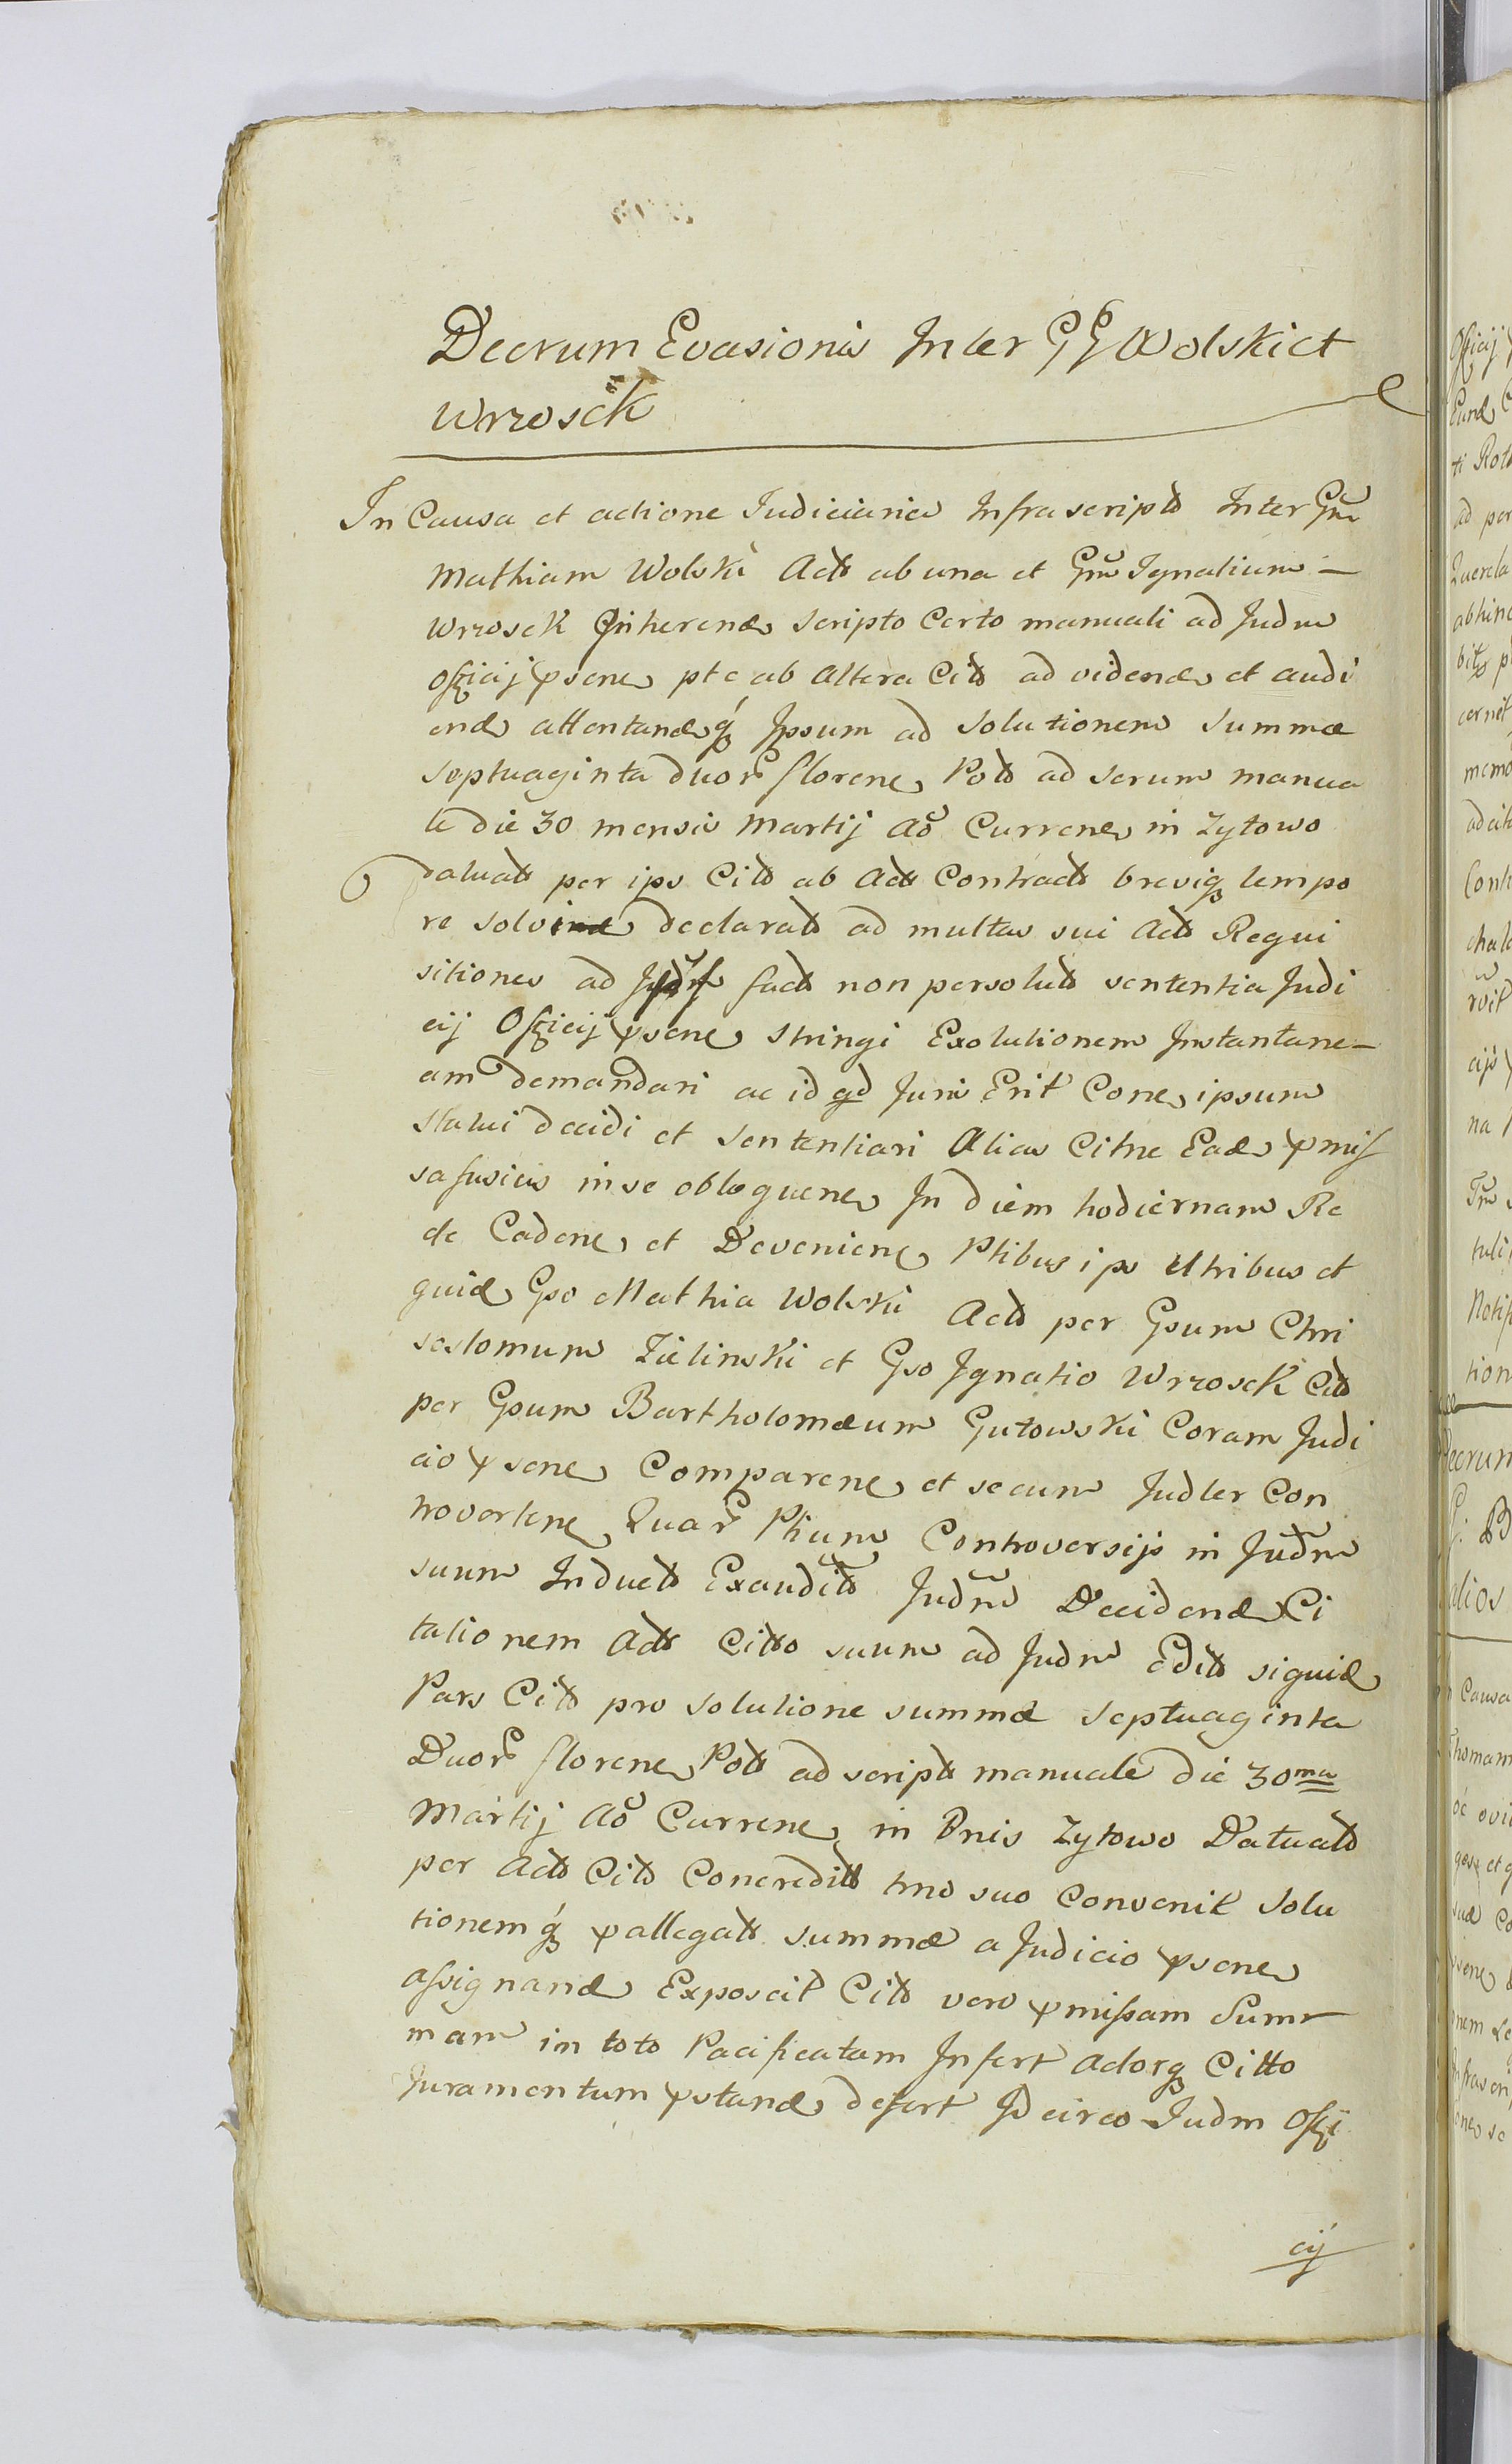 Decrum Evasionis Inter GG Wolski et
Wrzosek
In Causa et actione Judiciaria Infrascripta Inter Gsum
Mathiam Wolski Act ab una et Gsum Ignatium
Wrzosek Inherend scripto Certo manuali ad Judm
Officij psens pte ab altera Cit ad vidend et audi
end attentandq Ipsum ad Solutionem Summæ
Septuaginta duor florens Pol ad scrum manua
le die 30 mensis Martij Ao Currens in Zytowo
datuat per ips Cit ab Act Contract brevique tempo
re solvi declarat ad multas sui Act Requi
sitiones ad fact non persolut sententia Judi
cij Officij psens stringi Exolutionem Instantane
am demandari ac id qd Juris Erit Cone ipsum
statui decidi et Sententiari Alias Citne Ead pmis
sa fusius in se obloquens In diem hodiernam Re
cte Cadens et Deveniens Ptibus ips Utribus et
quid Gso Mathia Wolski Act per Gsum Chri
sostomum Zielinski et Gso Ignatio Wrzosek Cit
per Gsum Bartholomæum Gutowski Coram Judi
cio psens Comparens et secum Judler Con
troverten Quar Ptium Controversijs in Judm
suum Induct Exaudit Judm Decidend Ci
tationem Act Citto suum ad Judm Edit siquid
Pars Cit pro Solutione summæ Septuaginta
Duor florens Pol ad script manuale die 30ma
Martij Ao Currens in Bnis Zytowo Datuat
per Act Cit Concredit tmo suo Convenit Solu
tionemq pallegat summæ a Judicio psens
assignand Exposcit Cit vero pmissam Sum
mam in toto Pacificatam Infert actorq Citto
Juramentum pstand defert Idcirco Judm Offi
cij